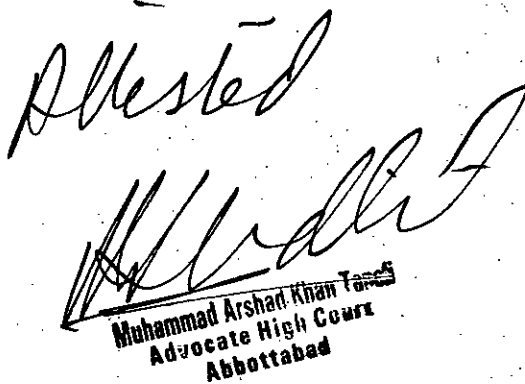 Attested
Muhammad Arshad Khan Tanoli
Advocate High Court
Abbottabad